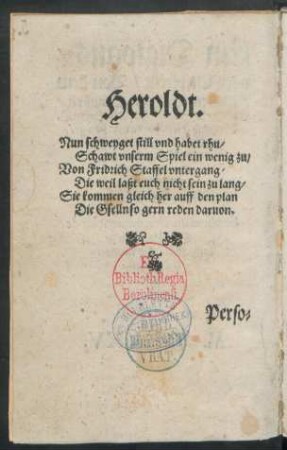 Heroldt.
Nun schweyget still vnd habet rhu/
Schawt vnserm Spiel ein wenig zu/
Von Fridrich Staffel vntergang/
Die weil laßt euch nicht sein zu lang/
Sie kommen gleich her auff den plan
Die Gselln so gern reden daruon.
Ex
Biblioth. Regia
Berolinensi.
Perso-